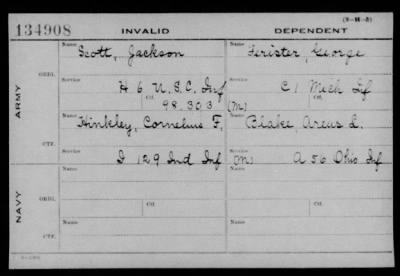 (3-14-3)
134908 INVALID DEPENDENT
Name Scott, Jackson Name Ferister, George
ORIG.
Service H 6 U.S.C. Inf Service C 1 Mich If
Ctf. 98.303 Ctf. (M)
ARMY
Name Hinkley, Cornelius F. Name Blake, Areus L.
CTF.
Service I 129 Ind Inf Service (M) A 56 Ohio If
Name Name
ORIG.
NAVY
Ctf. Ctf.
Name Name
CTF.